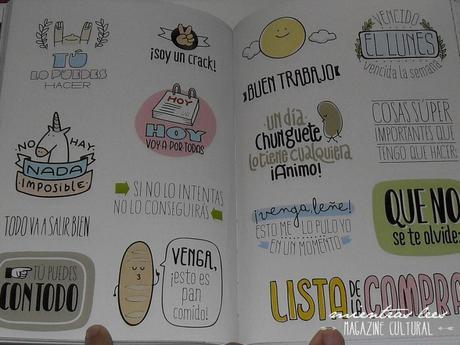 TÚ
LO PUEDES
HACER
¡soy un crack!
NO HAY
NADA
IMPOSIBLE
HOY
HOY
VOY A POR TODAS
SI NO LO INTENTAS
NO LO CONSEGUIRÁS
TODO VA A SALIR BIEN
TÚ PUEDES
CON TODO
VENGA,
¡esto es
pan
comido!
BUEN TRABAJO
VENCIDO
EL LUNES
vencida la semana
UN DÍA
CHUNGUETE
LO TIENE CUALQUIERA
¡ÁNIMO!
COSAS SÚPER
IMPORTANTES QUE
TENGO QUE HACER:
¡venga, leñe!
ESTO ME LO PULO YO
EN UN MOMENTO
QUE NO
se te olvide:
LISTA DE LA COMPRA
mientras lees
MAGAZINE CULTURAL